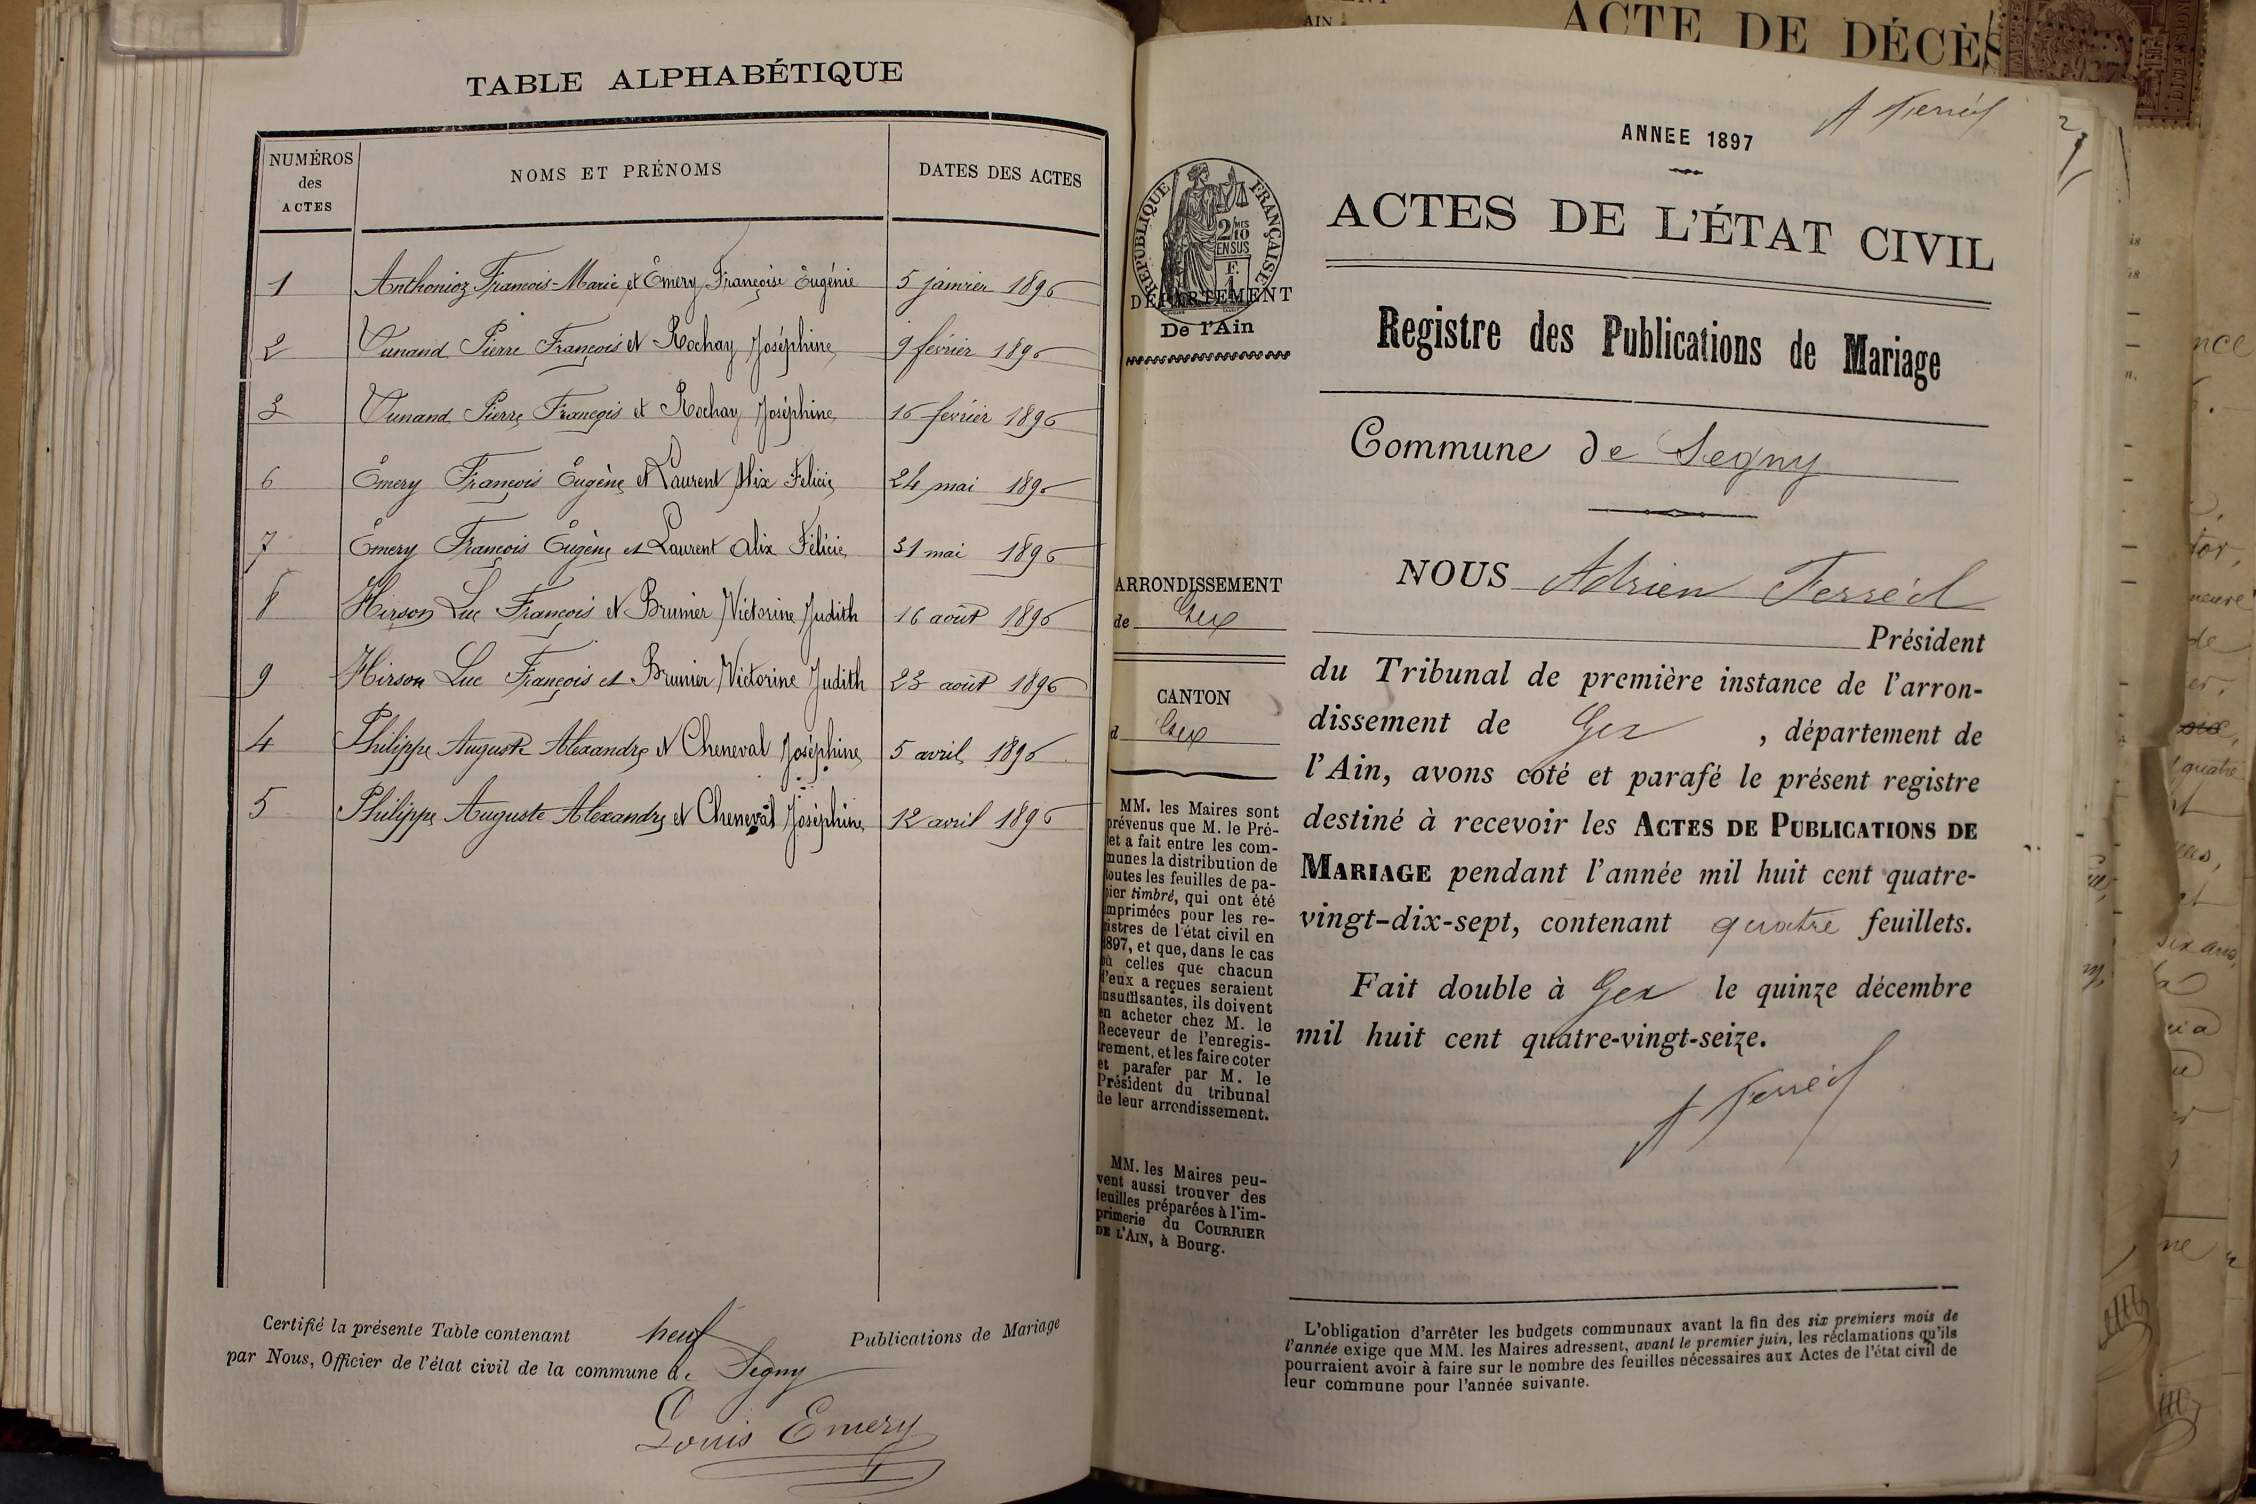 TABLE ALPHABÉTIQUE
NUMÉROS des ACTES NOMS ET PRÉNOMS DATES DES ACTES
1 Anthonioz François-Marie et Émery Françoise Eugénie 5 janvier 1896
2 Vunand Pierre François et Rochay Joséphine 9 février 1896
3 Vunand Pierre François et Rochay Joséphine 16 février 1896
6 Émery François Eugène et Laurent Alix Félicie 24 mai 1896
7 Émery François Eugène et Laurent Alix Félicie 31 mai 1896
8 Hirson Luc François et Brunier Victorine Judith 16 août 1896
9 Hirson Luc François et Brunier Victorine Judith 23 août 1896
4 Philippe Auguste Alexandre et Cheneval Joséphine 5 avril 1896
5 Philippe Auguste Alexandre et Cheneval Joséphine 12 avril 1896
Certifié la présente Table contenant neuf Publications de Mariage
par Nous, Officier de l'état civil de la commune de Segny
Louis Emery
ACTE DE DÉCÈS
AIN
A Ferréol
ANNEE 1897
ACTES DE L'ÉTAT CIVIL
RÉPUBLIQUE FRANÇAISE
2/10 MES
EN SUS
DÉPARTEMENT
De l'Ain
Registre des Publications de Mariage
Commune de Segny
ARRONDISSEMENT
de Gex
CANTON
d Gex
MM. les Maires sont
prévenus que M. le Pré-
fet a fait entre les com-
munes la distribution de
toutes les feuilles de pa-
pier timbré, qui ont été
imprimées pour les re-
gistres de l'état civil en
1897, et que, dans le cas
où celles que chacun
d'eux a reçues seraient
insuffisantes, ils doivent
en acheter chez M. le
Receveur de l'enregis-
trement, et les faire coter
et parafer par M. le
Président du tribunal
de leur arrondissement.
MM. les Maires peu-
vent aussi trouver des
feuilles préparées à l'im-
primerie du COURRIER
DE L'AIN, à Bourg.
NOUS Adrien Ferréol
Président
du Tribunal de première instance de l'arron-
dissement de Gex , département de
l'Ain, avons coté et parafé le présent registre
destiné à recevoir les ACTES DE PUBLICATIONS DE
MARIAGE pendant l'année mil huit cent quatre-
vingt-dix-sept, contenant quatre feuillets.
Fait double à Gex le quinze décembre
mil huit cent quatre-vingt-seize.
A Ferréol
L'obligation d'arrêter les budgets communaux avant la fin des six premiers mois de
l'année exige que MM. les Maires adressent, avant le premier juin, les réclamations qu'ils
pourraient avoir à faire sur le nombre des feuilles nécessaires aux Actes de l'état civil de
leur commune pour l'année suivante.